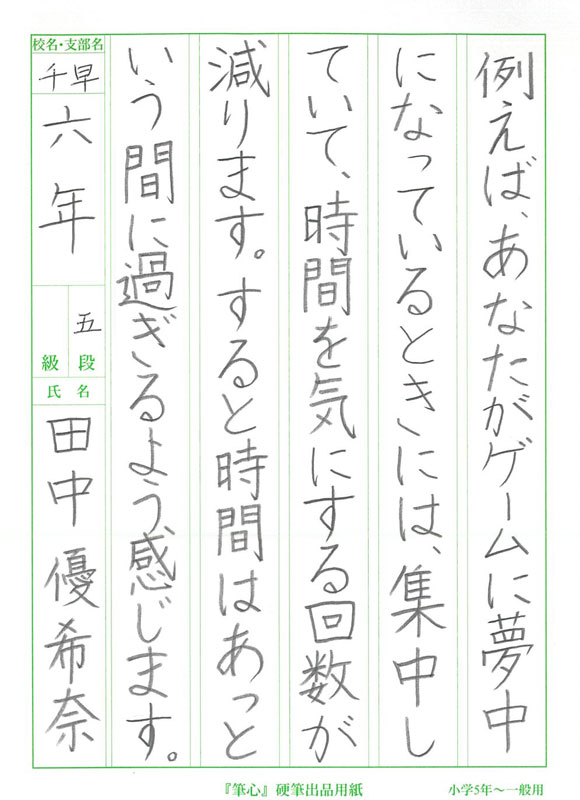 例えば、あなたがゲームに夢中
になっているときには、集中し
ていて、時間を気にする回数が
減ります。すると時間はあっと
いう間に過ぎるよう、感じます。
校名・支部名
千早
六年
五段
級
氏名
田中優希奈
『筆心』硬筆出品用紙
小学5年～一般用